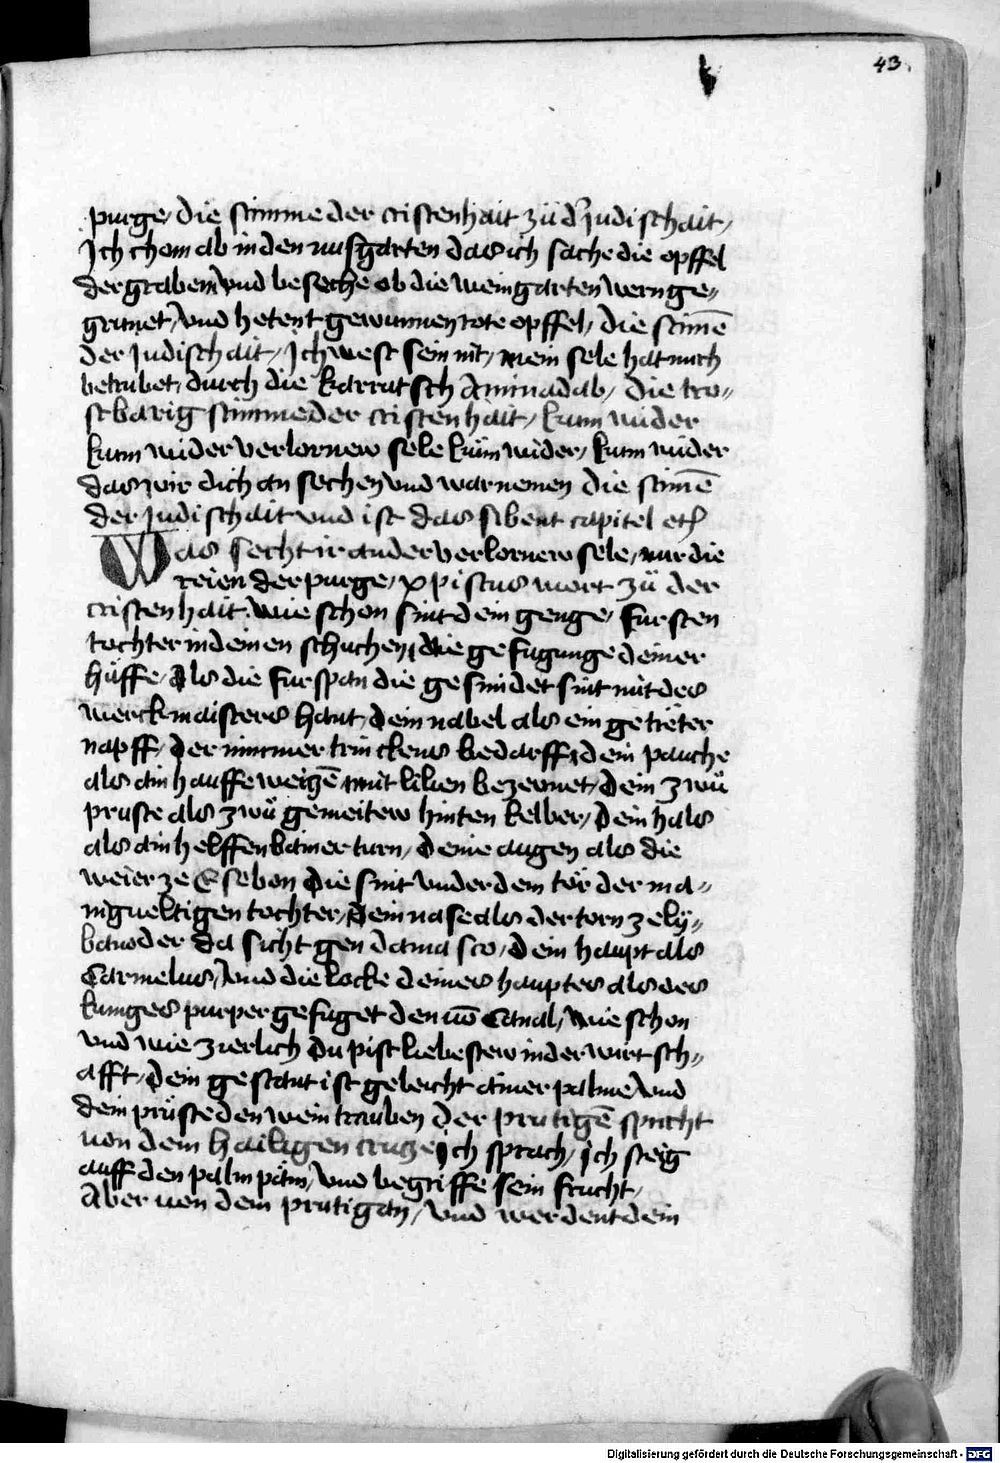 43.
purge / die stimme der cristenhait zü d' Judischait /
Ich chom ab in den nusgarten das ich sache die opffel
der graben vnd beseche ob die weingarten wern ge„
grunet / vnd hetent gewunnen rote opffel / die stim̄e
der Judischait / Ich west sein nit / mein sele hat mich
betrubet / durch die karrutsch Aminadab / die tro„
stbarig stimme der cristenhait / kum wider
kum wider verlornew sele kum wider / kum wider
das wir dich an sechen vnd warnemen die stim̄e
der Judischait vnd ist das sibent capitel etc̄
Was secht ir an der verlornew sele / nur die
reien der purge / xpistus wort zü der
cristenhait wie schon sint dein genge / fursten
tochter in deinen schuchen / die gefugunge deiner
hüffe / Als die furspan die gesmidet sint mit des
werckmaisters hant / dein nabel als ein geträter
napff / der nimmer trinckens bedarff / dein pauche
als ain hauffe weiczē mit lilien bezewnet / dein zwü
pruste als zwü gemeitew hinten kelber / dein hals
als ain helffenbainer turn / deine augen als die
weier ze Esebon die sint vnder dem tör der ma„
nigueltigen tochter / dein nase als der torn ze ly„
banoder da sicht gen damasco / dein haupt als
Carmelus / vnd die locke deines hauptes als des
kuniges purper gefuget den uō Canal / wie schon
vnd wie zierlich du pist liebestew in der wirtsch„
afft / dein gestant ist geleicht ainer palme vnd
dein prüste den weintrauben der prutigē spricht
uon dem hailigen cruze Ich sprach / ich steig
auff den palmpäm / vnd begriffe sein frucht /
Aber uen dem prutigan / vnd werdent dein
Digitalisierung gefördert durch die Deutsche Forschungsgemeinschaft - DFG